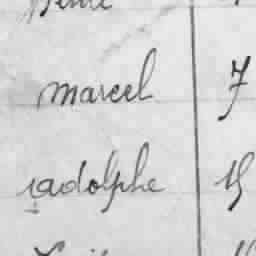 marcel 7
adolphe 15